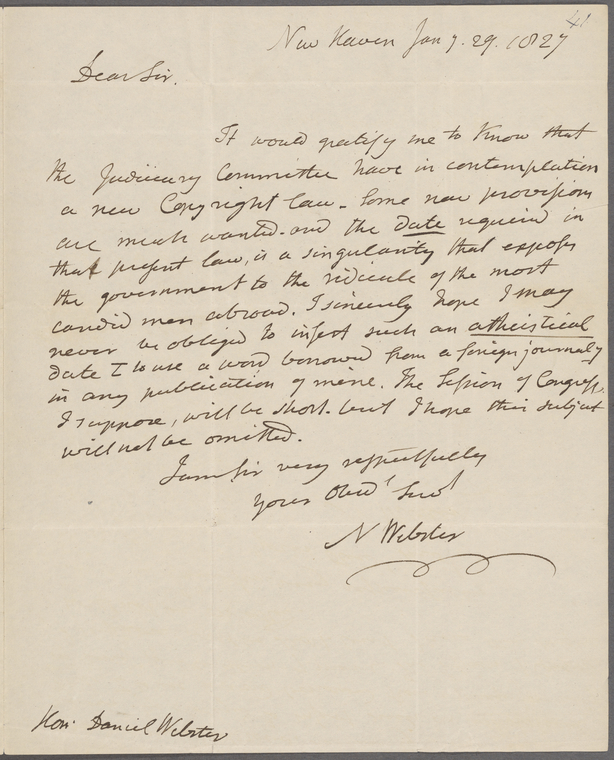 41
New Haven Jany. 29. 1827
Dear Sir.
It would gratify me to know that
the Judiciary Committee have in contemplation
a new Copyright law. Some new provisions
are much wanted. and the date required in
that present law, is a singularity that exposes
the government to the ridicule of the most
candid men abroad. I sincerely hope I may
never be obliged to insert such an atheistical
date [to use a word borrowed from a foreign journal]
in any publication of mine. The Session of Congress,
I suppose, will be short. but I hope this subject
will not be omitted.
I am Sir very respectfully
your Obedt Servt
N Webster
Hon. Daniel Webster